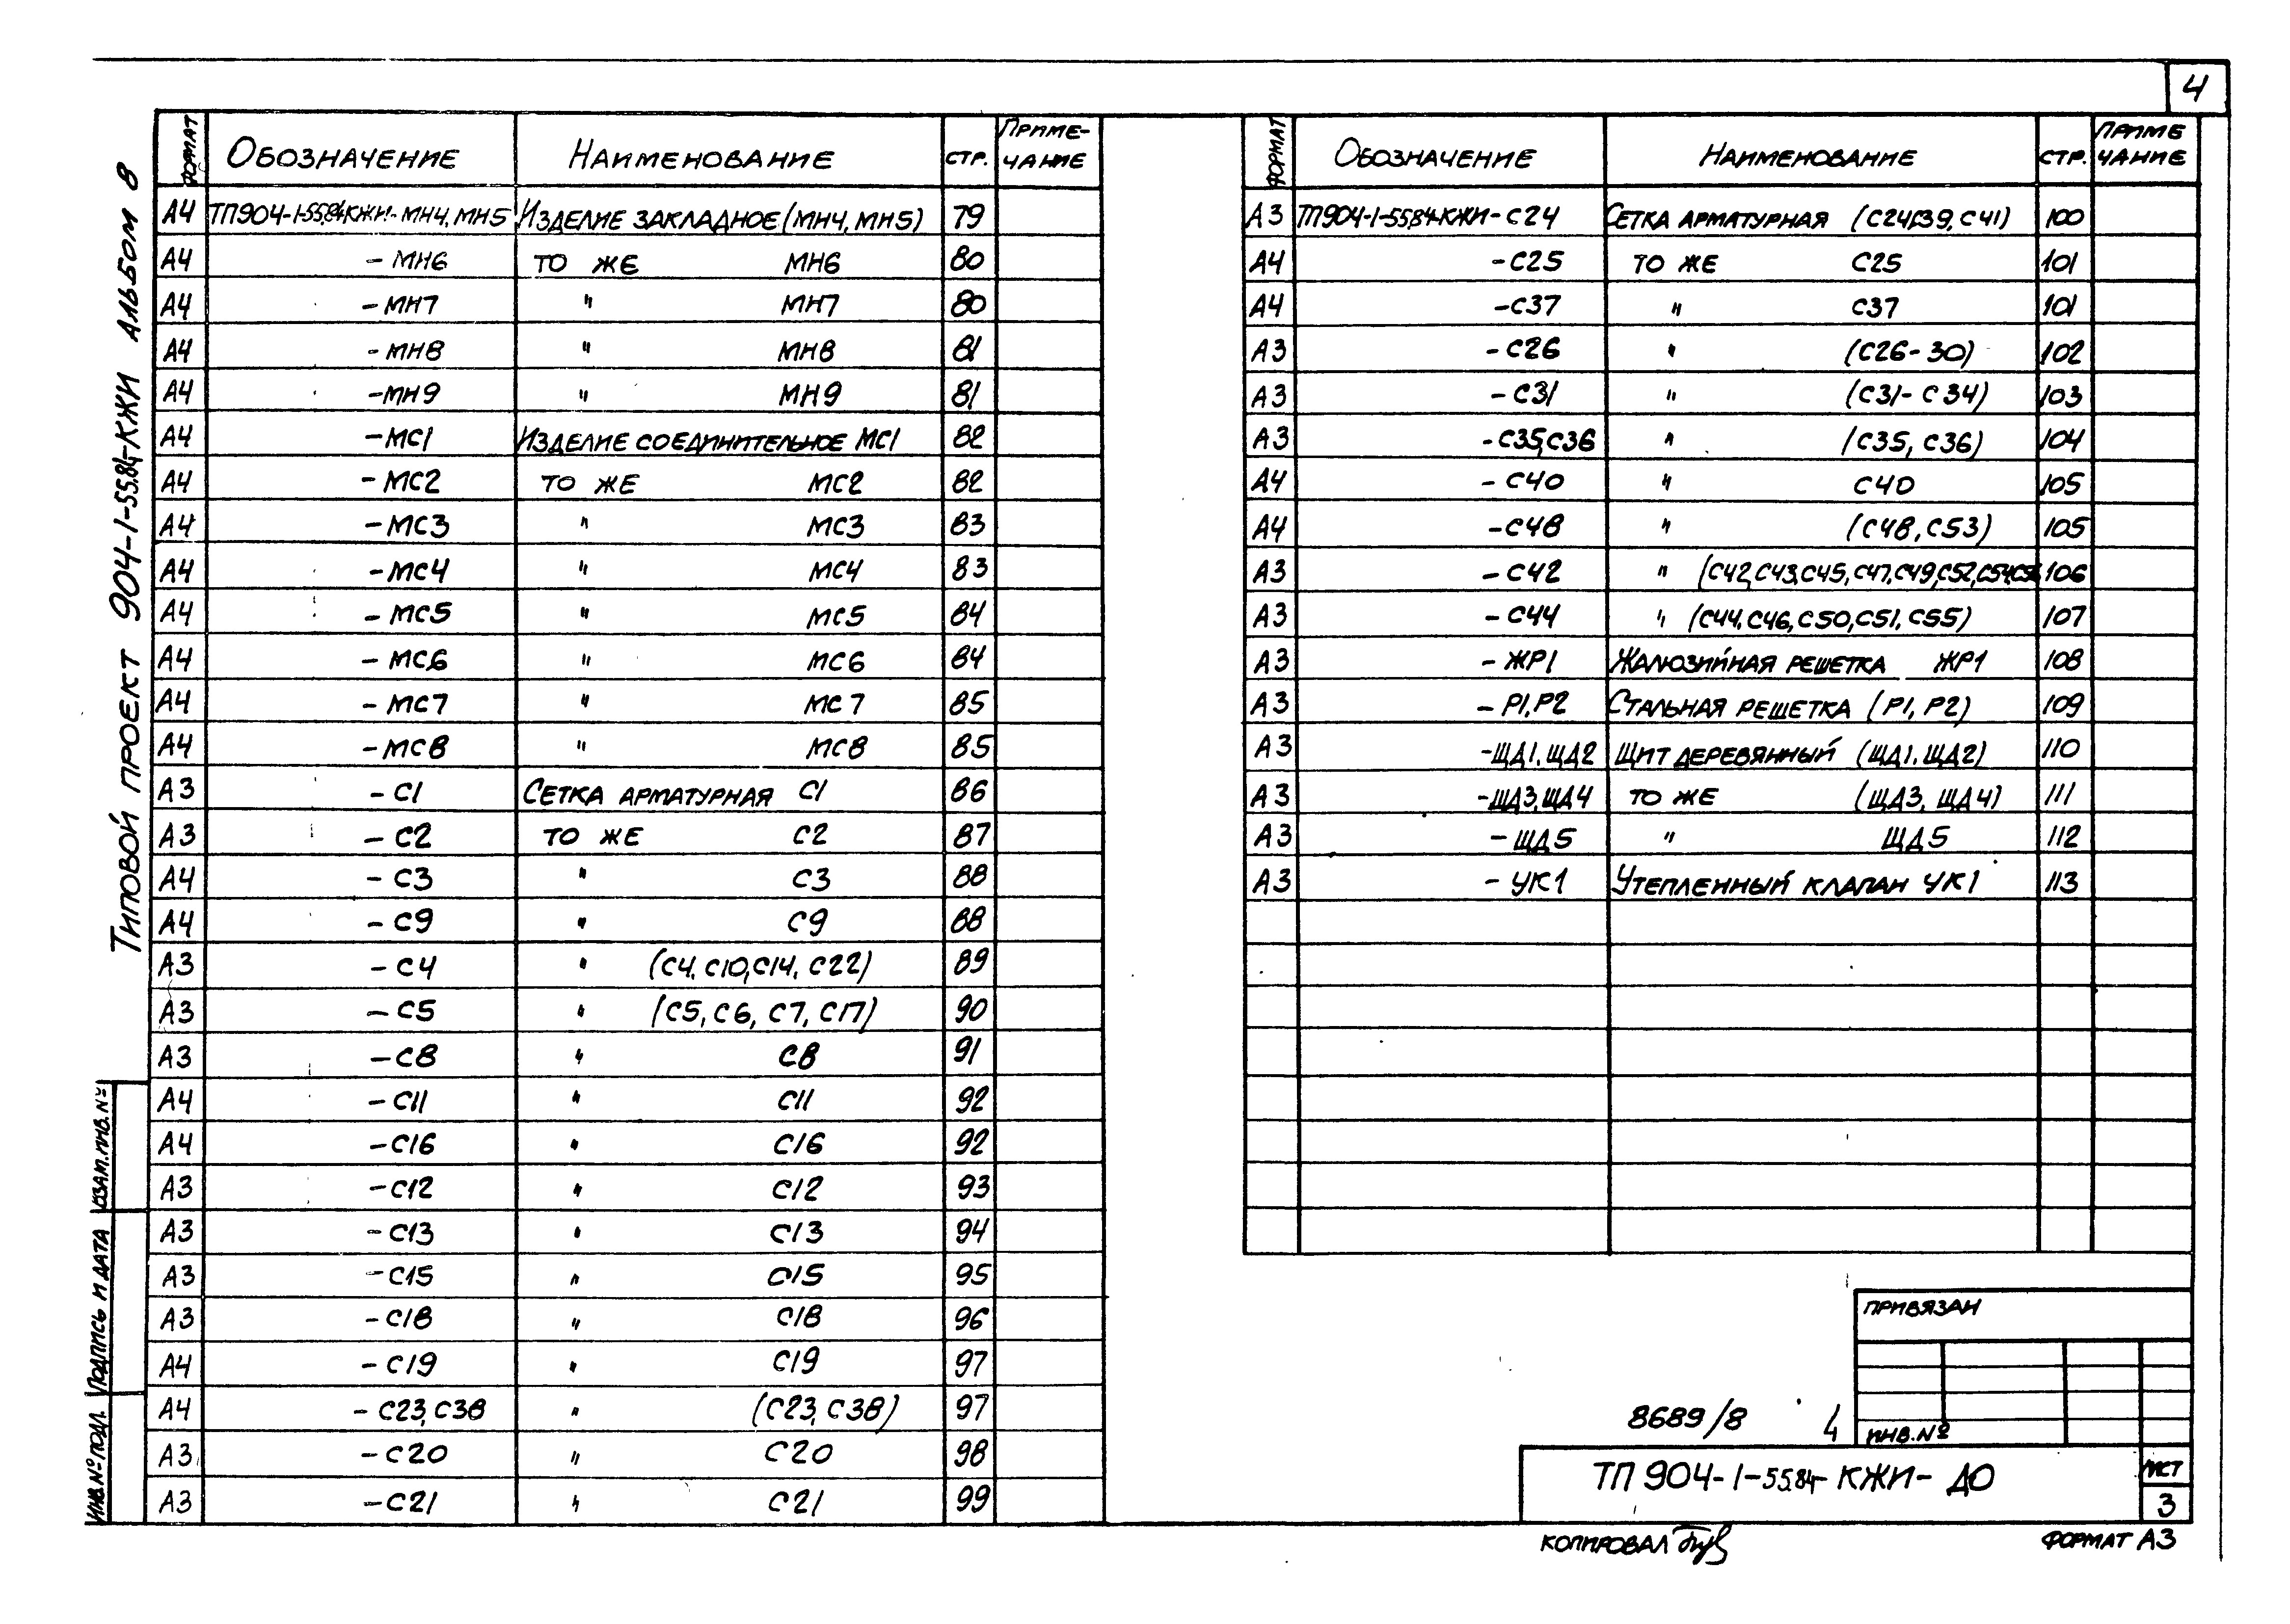 4
Типовой проект 904-1-55.84-КЖИ Альбом 8
Формат Обозначение Наименование Стр. Примечание
А4 ТП904-1-55.84-КЖИ-МН4, МН5 Изделие закладное (МН4, МН5) 79
А4 -МН6 то же МН6 80
А4 -МН7 " МН7 80
А4 -МН8 " МН8 81
А4 -МН9 " МН9 81
А4 -МС1 Изделие соединительное МС1 82
А4 -МС2 то же МС2 82
А4 -МС3 " МС3 83
А4 -МС4 " МС4 83
А4 -МС5 " МС5 84
А4 -МС6 " МС6 84
А4 -МС7 " МС7 85
А4 -МС8 " МС8 85
А3 -С1 Сетка арматурная С1 86
А3 -С2 то же С2 87
А4 -С3 " С3 88
А4 -С9 " С9 88
А3 -С4 " (С4, С10, С14, С22) 89
А3 -С5 " (С5, С6, С7, С17) 90
А3 -С8 " С8 91
А4 -С11 " С11 92
А4 -С16 " С16 92
А3 -С12 " С12 93
А3 -С13 " С13 94
А3 -С15 " С15 95
А3 -С18 " С18 96
А4 -С19 " С19 97
А4 -С23, С38 " (С23, С38) 97
А3 -С20 " С20 98
А3 -С21 " С21 99
Формат Обозначение Наименование Стр. Примечание
А3 ТП904-1-55.84-КЖИ-С24 Сетка арматурная (С24, С39, С41) 100
А4 -С25 то же С25 101
А4 -С37 " С37 101
А3 -С26 " (С26-30) 102
А3 -С31 " (С31-С34) 103
А3 -С35, С36 " (С35, С36) 104
А4 -С40 " С40 105
А4 -С48 " (С48, С53) 105
А3 -С42 " (С42, С43, С45, С47, С49, С52, С54, 106
А3 -С44 " (С44, С46, С50, С51, С55) 107
А3 -ЖР1 Жалюзийная решетка ЖР1 108
А3 -Р1, Р2 Стальная решетка (Р1, Р2) 109
А3 -ЩД1, ЩД2 Щит деревянный (ЩД1, ЩД2) 110
А3 -ЩД3, ЩД4 то же (ЩД3, ЩД4) 111
А3 -ЩД5 " ЩД5 112
А3 -УК1 Утепленный клапан УК1 113
Взам. инв. №
Подпись и дата
Инв. № подл.
Привязан
Инв. №
8689/8 4
ТП 904-1-55.84-КЖИ-ДО
Лист
3
Копировал
Формат А3